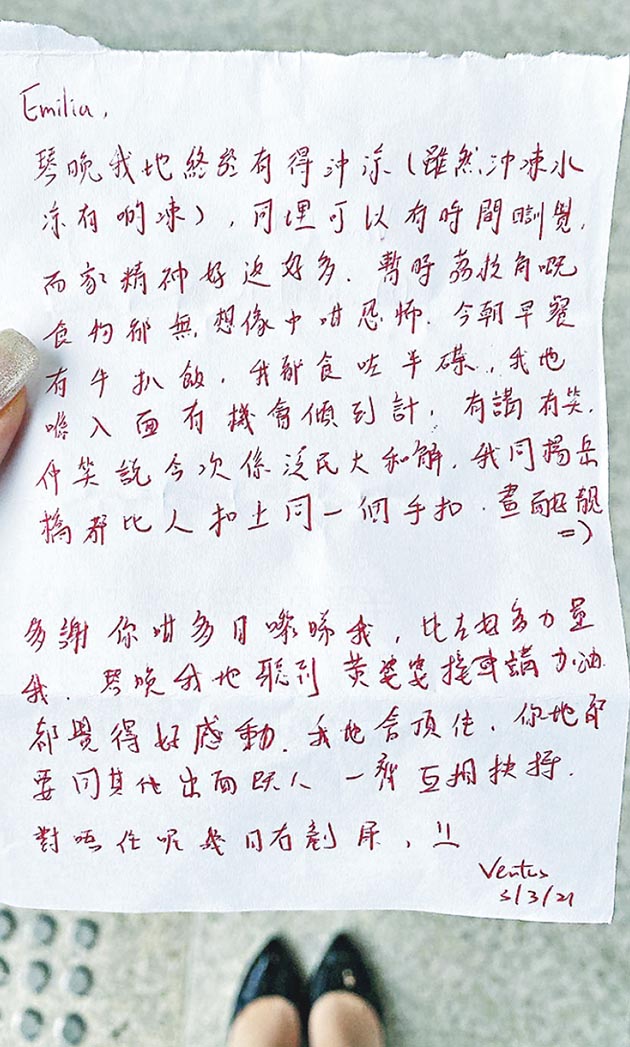 Emilia,
琴晚我地終於有得沖涼(雖然沖凍水
涼有啲凍),同埋可以有時間瞓覺,
而家精神好返好多.暫時荔枝角嘅
食物都無想像中咁恐怖.今朝早餐
有牛扒飯,我都食咗半碟.我地
喺入面有機會傾到計,有講有笑,
仲笑說今次係泛民大和解,我同楊岳
橋都比人扣上同一個手扣.
=)
多謝你咁多日嚟睇我,比左好多力量
我.琴晚我地聽到黃婆婆接車講加油
都覺得好感動.我地會頂住,你地都
要同其他出面既人一齊互相扶持.
對唔住呢幾日冇剃鬚,
Ventus
5/3/21